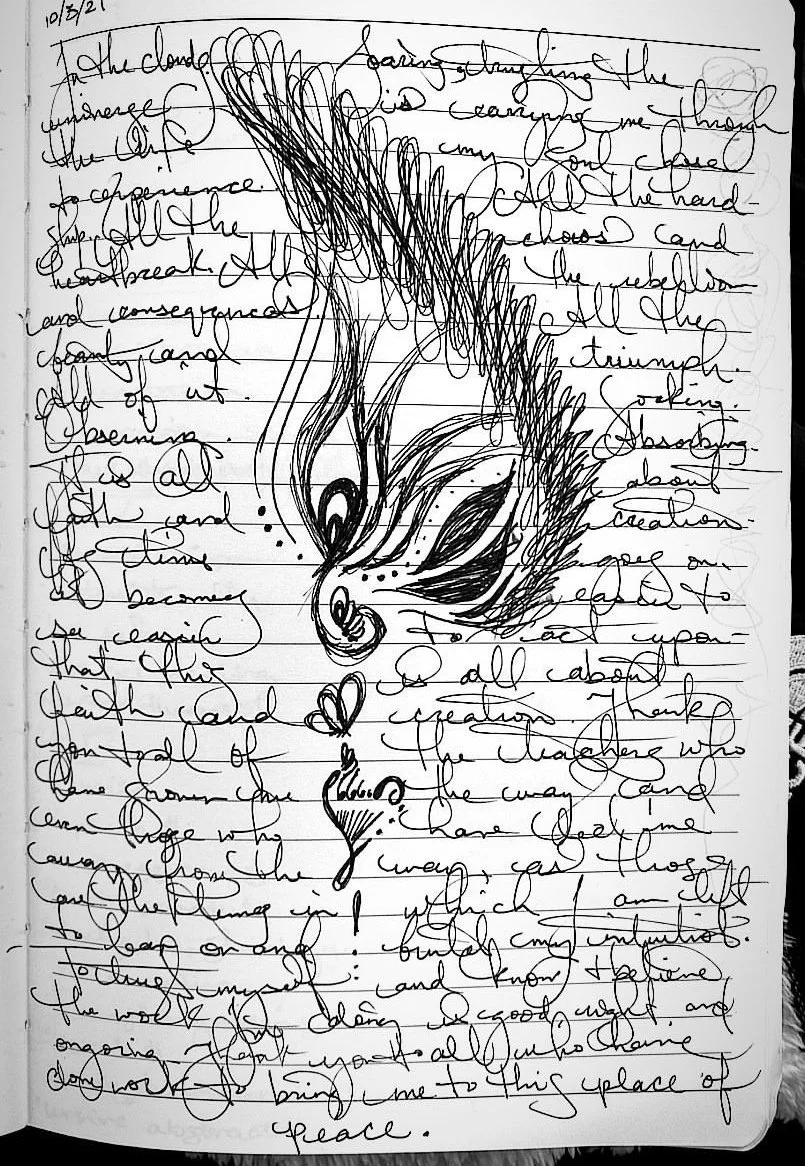 10/3/21
In the clouds. Soaring, trusting the
universe is carrying me through
the life my soul chose
to experience. All the hard-
ship. All the chaos and
heartbreak. All the rebellion
and consequences. All the
beauty and triumph.
All of it. Soaking.
Observing. Absorbing.
It is all about
faith and creation.
As time goes on,
it becomes easier to
see easier to act upon
that this is all about
faith and creation. Thank
you to all of the teachers who
have shown me the way and
even those who have led me
away from the way, as those
are the times in which I am left
to lean on and build my intuition.
To trust myself and know & believe
the work I'm doing is good, right and
ongoing. Thank you to all who have
done work to bring me to this place of
peace.